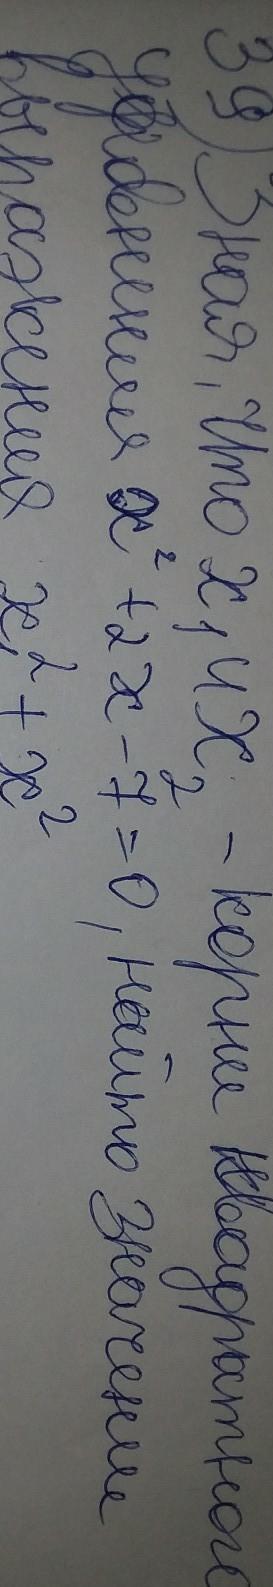 39) Зная, что x₁ и x₂ - корни квадратного
уравнения x² + 2x - 7 = 0, найти значение
выражения x₁² + x²